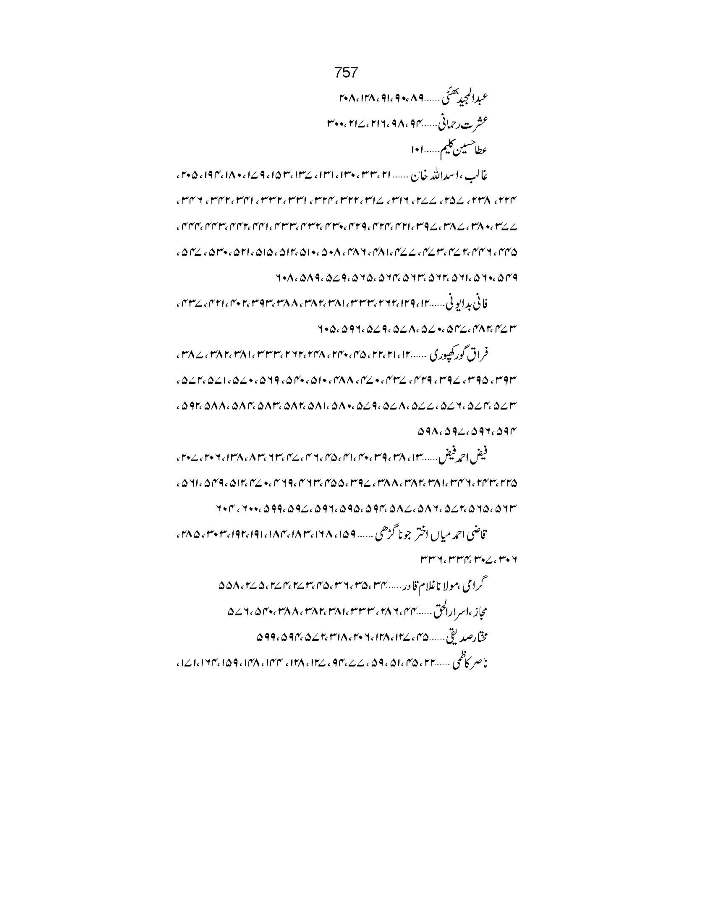 757
عبدالمجید بھٹی ......۸۹،۹۰،۹۱،۱۲۸،۲۰۸
عشرت رحمانی......۹۴،۹۸،۲۱۶،۲۱۷،۳۰۰
عطا حسین کلیم......۱۰۱
غالب،اسداللہ خان ......۲۱،۳۳،۱۳۰،۱۳۱،۱۳۷،۱۵۳،۱۷۹،۱۸۰،۱۹۴،۲۰۵،
۲۲۴،۲۳۸،۲۵۷،۲۷۷،۳۱۶،۳۱۷،۳۲۲،۳۲۴،۳۳۱،۳۳۲،۳۴۱،۳۴۲،۳۴۶،
۳۷۷،۳۸۰،۳۸۷،۳۹۷،۴۲۱،۴۲۴،۴۲۹،۴۳۰،۴۳۲،۴۳۳،۴۴۱،۴۴۲،۴۴۳،۴۴۴،
۴۴۵،۴۴۶،۴۷۲،۴۷۳،۴۷۷،۴۸۱،۴۸۶،۵۰۸،۵۱۰،۵۱۲،۵۱۵،۵۲۱،۵۳۰،۵۴۷،
۵۴۹،۵۶۰،۵۶۱،۵۶۲،۵۶۳،۵۶۴،۵۶۵،۵۷۹،۵۸۹،۶۰۸
فانی بدایونی......۱۲،۱۲۹،۲۶۲،۳۳۳،۳۸۱،۳۸۲،۳۸۸،۳۹۳،۴۰۲،۴۲۱،۴۳۷،
۴۷۳،۴۸۲،۵۴۷،۵۷۰،۵۷۸،۵۷۹،۵۹۶،۶۰۵
فراق گورکھپوری ......۱۲،۲۱،۲۲،۴۵،۲۴۰،۲۴۸،۲۶۲،۳۳۳،۳۸۱،۳۸۲،۳۸۷،
۳۹۳،۳۹۵،۳۹۷،۴۲۹،۴۳۷،۴۷۰،۴۸۸،۵۱۰،۵۴۰،۵۶۹،۵۷۰،۵۷۱،۵۷۲،
۵۷۳،۵۷۴،۵۷۶،۵۷۷،۵۷۸،۵۷۹،۵۸۰،۵۸۱،۵۸۲،۵۸۳،۵۸۴،۵۸۸،۵۹۲،
۵۹۴،۵۹۶،۵۹۷،۵۹۸
فیض احمد فیض......۱۳،۳۸،۳۹،۴۰،۴۱،۴۵،۴۶،۴۷،۶۳،۸۳،۱۳۸،۲۰۶،۲۰۷،
۲۲۵،۲۴۳،۳۴۶،۳۸۱،۳۸۲،۳۸۸،۳۹۷،۴۵۵،۴۶۳،۴۶۹،۴۷۰،۵۱۲،۵۴۹،۵۶۱،
۵۶۳،۵۶۵،۵۷۲،۵۸۶،۵۸۷،۵۹۴،۵۹۵،۵۹۶،۵۹۷،۵۹۹،۶۰۰،۶۰۴
قاضی احمد میاں اختر جونا گڑھی ......۱۵۹،۱۶۸،۱۸۳،۱۸۴،۱۹۱،۱۹۲،۳۰۳،۲۸۵،
۳۰۶،۳۰۷،۳۳۴،۳۳۶
گرامی،مولا ناغلام قادر......۳۴،۳۵،۳۶،۴۵،۲۷۳،۲۷۴،۲۷۵،۵۵۸
مجاز،اسرارالحق ......۴۴،۲۸۶،۳۳۳،۳۸۱،۳۸۲،۳۸۸،۵۴۰،۵۷۶
مختارصدیقی ......۴۵،۱۲۷،۱۲۸،۲۰۶،۳۱۸،۵۷۲،۵۹۴،۵۹۹
ناصر کاظمی ......۲۲،۴۵،۵۱،۵۹،۷۷،۹۴،۱۲۷،۱۲۸،۱۴۴،۱۴۸،۱۵۹،۱۶۴،۱۷۱،